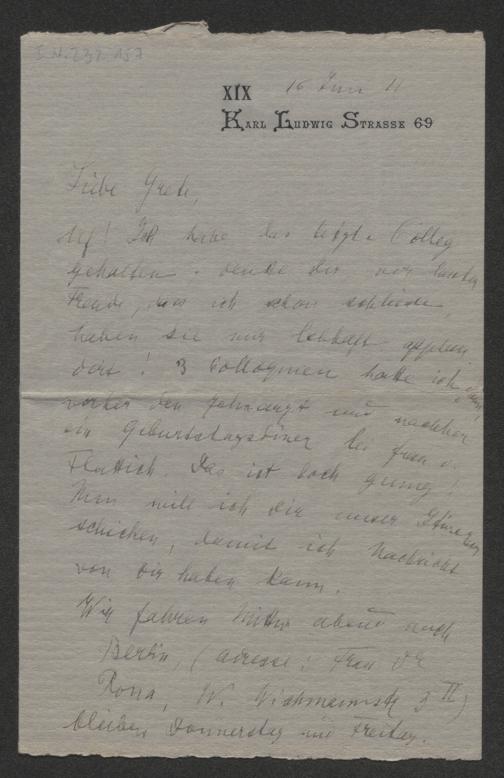 I.N. 232.157
XIX 16 Juni 11
KARL LUDWIG STRASSE 69
Liebe Grete,
Uf! Ich habe das letzte Colleg
gehalten. denke dir vor lauter
Freude, dass ich schon schliesse,
haben sie mir lebhaft applau
dirt! 3 Colloquien hatte ich
vorher den Zahnarzt und nachher
ein Geburtstagsdiner bei Frau v.
Flattich. Das ist doch genug!
Nun will ich dir unser
schicken, damit ich Nachricht
von dir haben kann.
Wir fahren abend nach
Berlin, (adresse: Frau Dr
Rona, W. Wichmannstr 3 II)
bleiben Donnerstag und Freitag.